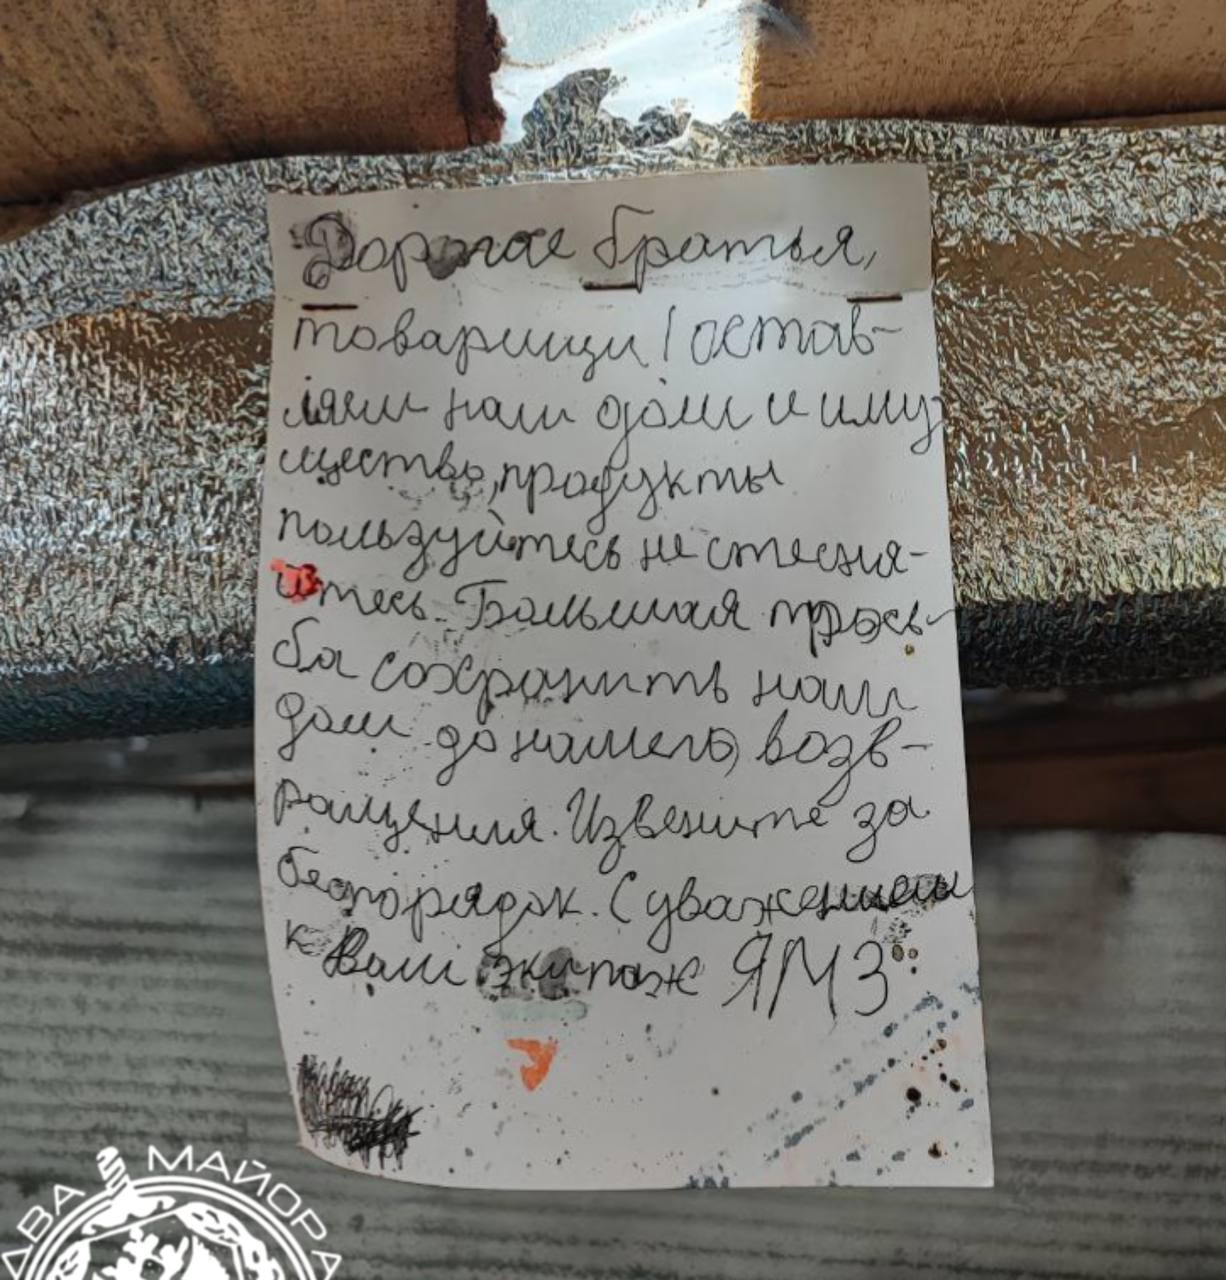 Дорогие братья,
товарищи! остав-
ляем наш дом и иму-
щество, продукты
пользуйтесь не стесня-
йтесь. Большая прось-
ба сохранить наш
дом до нашего возв-
ращения. Извените за
беспорядок. С уважением
к Вам экипаж ЯМЗ
ДВА МАЙОРА